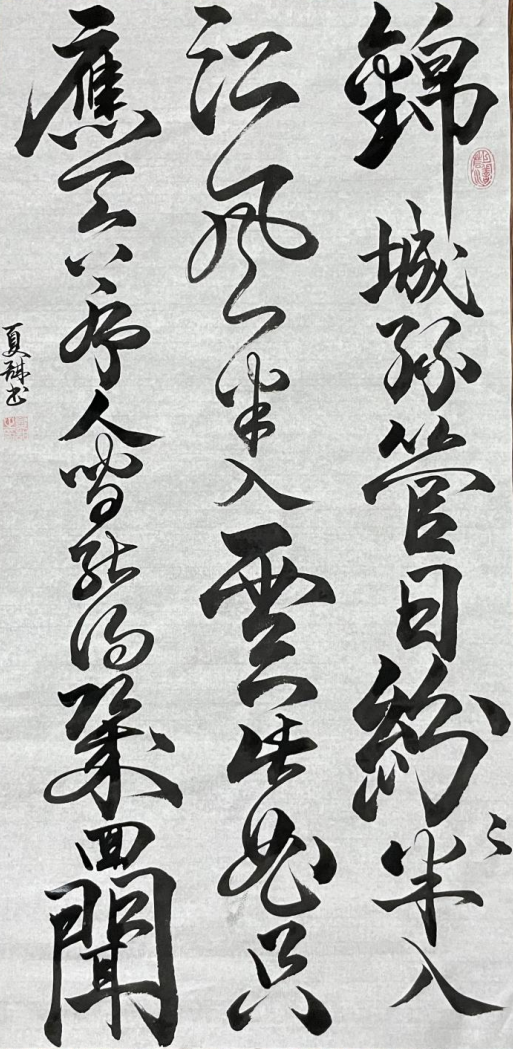 錦城絲管日紛〻半入
江風半入雲此曲只
應天上有人間能得幾回聞
夏琳书